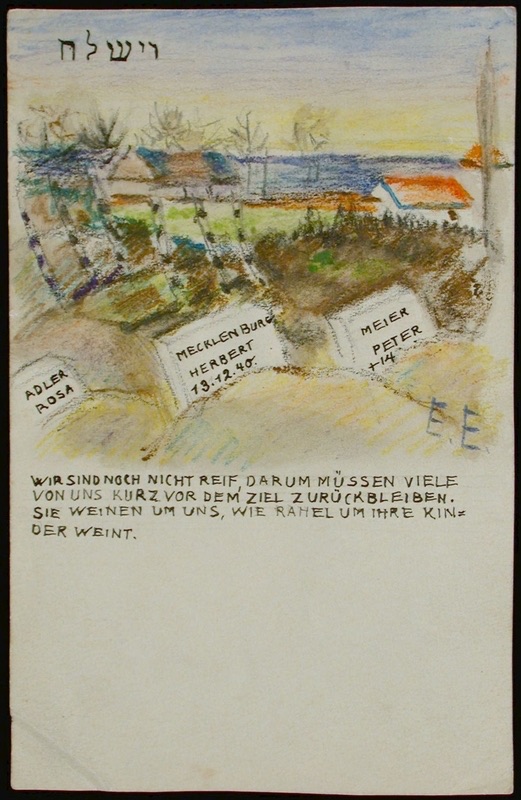 וישלח
ADLER
ROSA
MECKLENBURG
HERBERT
13.12.40.
MEIER
PETER
+14
E.E.
WIR SIND NOCH NICHT REIF, DARUM MÜSSEN VIELE
VON UNS KURZ VOR DEM ZIEL ZURÜCKBLEIBEN.
SIE WEINEN UM UNS, WIE RAHEL UM IHRE KIN=
DER WEINT.